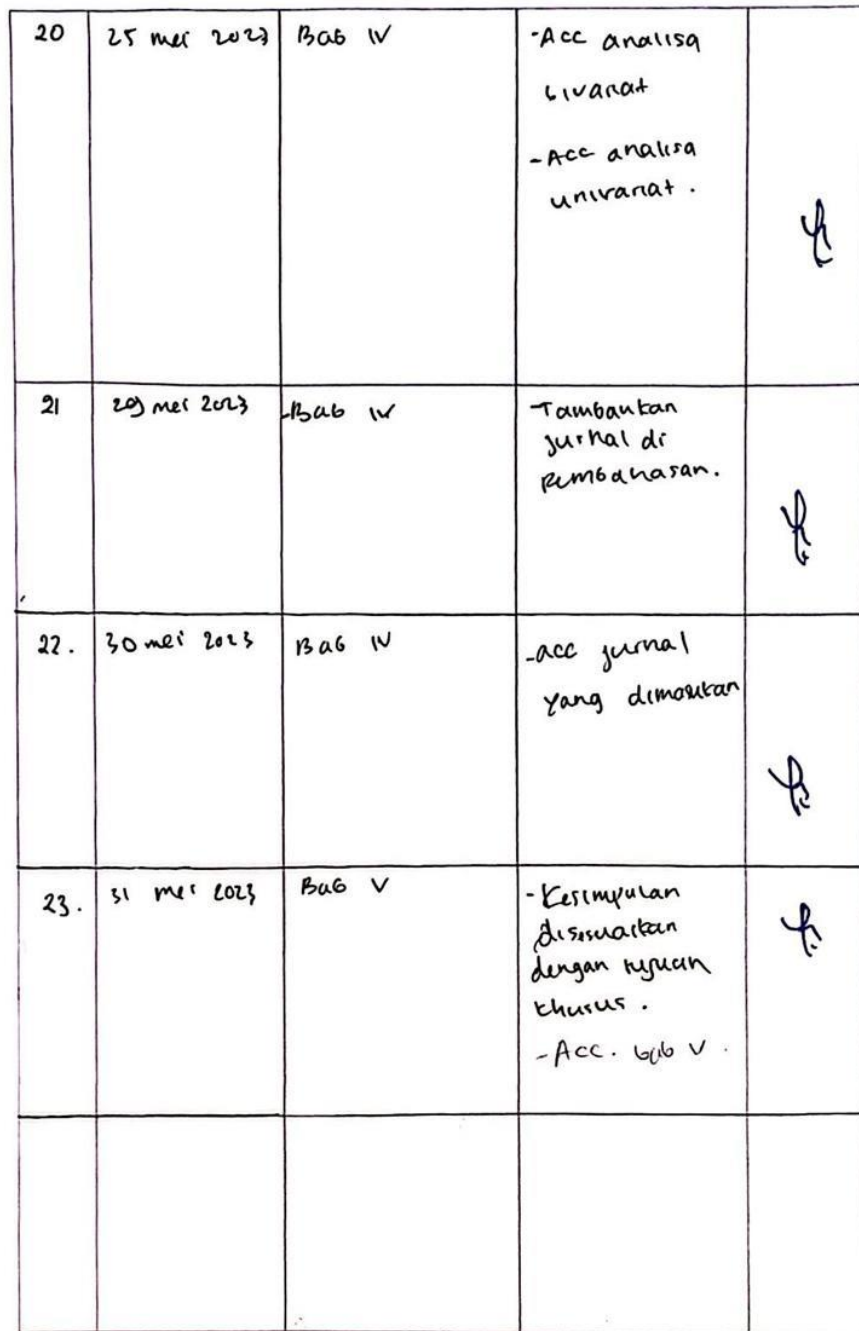 20 25 mei 2023 Bab IV -Acc analisa
bivariat
-Acc analisa
univariat.
21 29 mei 2023 -Bab IV -Tambahkan
jurnal di
pembahasan.
22. 30 mei 2023 Bab IV -acc jurnal
yang dimasukan
23. 31 mei 2023 Bab V -Kesimpulan
disesuaikan
dengan tujuan
khusus.
-Acc. bab V.